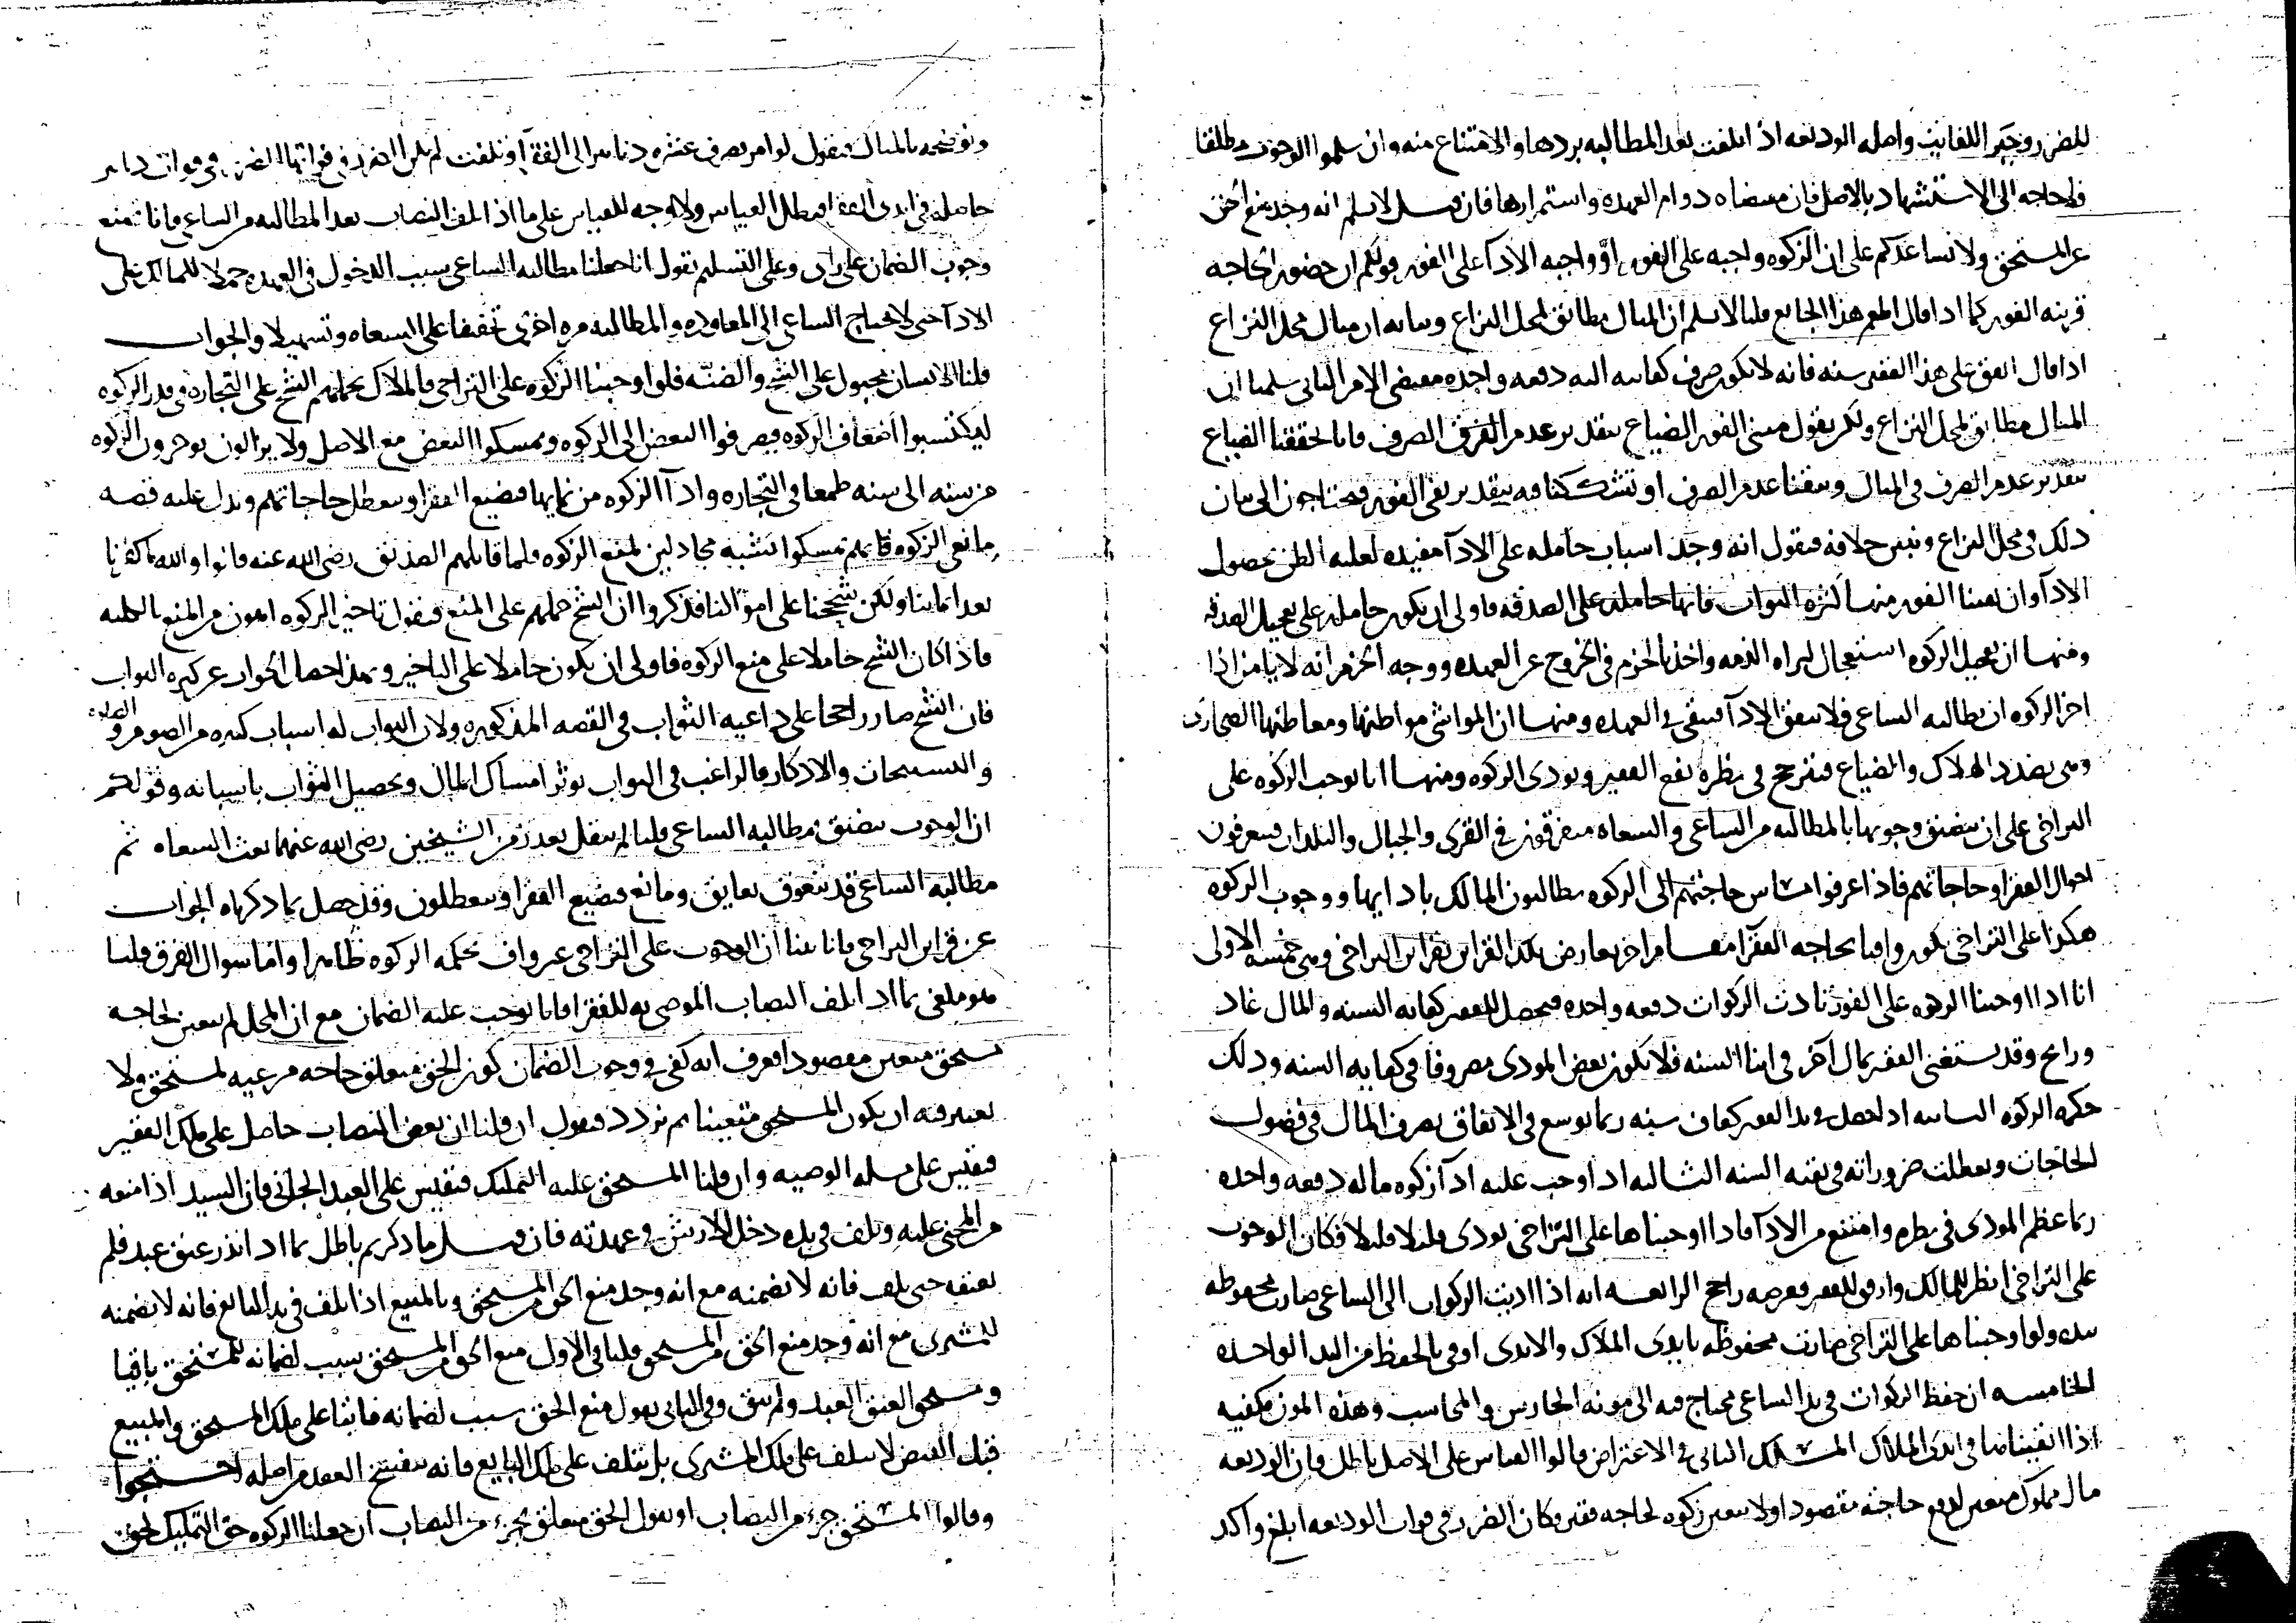 للضرر وجبر اللفايت واصله الوديعه اذا اتلفت بعد المطالبه بردها والامتناع منه وان سلموا الوجوب مطلقا
فلا حاجه الى الاستشهاد بالاصل فان مقتضاه دوام العهده واستمرارها فان قيل لا نسلم انه وجد منع الحق
عن المستحق ولا نساعدكم على ان الزكوه واجبه على الفور او واجبه الادآ على الفور قولكم ان حضور الحاجه
قرينه الفور كما اذا قال اطعم هذا الجايع قلنا لا نسلم ان المثال مطابق لمحل النزاع وبيانه ان مثال محل النزاع
اذا قال انفق على هذا الفقير سنه فانه لا يكون صرف كفايته اليه دفعه واحده مقتضى الامر الثاني سلمنا ان
المثال مطابق لمحل النزاع ولكن نقول مبنى الفور الضياع بتقدير عدم الصرف فانا تحققنا الضياع
بتقدير عدم الصرف في المثال وتيقنا عدم الصرف او تشككنا فيه بتقدير نفى الفور فتحتاجون الى بيان
ذلك في محل النزاع ونبين خلافه فنقول انه وجد اسباب حامله على الادآ مفيده لغلبه الظن بحصول
الادآ وان نفينا الفور منها كثره الثواب فانها حامله على الصدقه فاولى ان يكون حامله على تعجيل الصدقه
ومنها ان تعجيل الزكوه استعجال لبراه الذمه واخذ بالحزم في الخروج عن العهده ووجه الحزم انه لا يامن اذا
اخر الزكوه ان يطالبه الساعى فلا يتفق الادآ فيبقى في العهده ومنها ان المواشى مواطنها ومعاطنها الصحارى
وهى بصدد الهلاك والضياع فيترجح في نظره نفع الفقير ويودى الزكوه ومنها انا نوجب الزكوه على
التراخى على ان يتضيق وجوبها بالمطالبه من الساعى والسعاه متفرقون في القرى والجبال والبلدان فيتعرفون
احوال الفقرا وحاجاتهم فاذا عرفوا مساس حاجتهم الى الزكوه يطالبون المالك بادايها ووجوب الزكوه
هكذا على التراخى يكون وافيا بحاجه الفقرآ مقام اخر تعارض تلك القراين بقراين التراخى وهى خمسه الاولى
انا اذا اوجبنا الزكوه على الفور تادت الزكوات دفعه واحده فيحصل للفقير كفايه السنه والمال غاد
ورايح وقد يستغنى الفقير بمال آخر في اثنا السنه فلا يكون بعض المودى مصروفا في كفايه السنه وذلك
حكمه الزكوه الثانيه اذا حصل في يد الفقير كفاف سنه ربما توسع في الانفاق بصرف المال في فضول
الحاجات وتعطلت ضروراته في بقيه السنه الثالثه اذا وجب عليه ادآ زكوه ماله دفعه واحده
ربما عظم المودى في نظره وامتنع من الادآ فاذا اوجبناها على التراخى يودى قليلا قليلا فكان الوجوب
على التراخى انظر للمالك وارفق للفقير فغرضه راجح الرابعه انه اذا اديت الزكوات الى الساعى صارت محفوظه
بيده ولو اوجبناها على التراخى صارت محفوظه بايدى الملاك والايدى اوفى بالحفظ من اليد الواحده
الخامسه ان حفظ الزكوات في يد الساعى يحتاج فيه الى مونه الحارس والمحاسب وهذه المون مكفيه
اذا ابقيناها في ايدى الملاك المسلك الثانى في الاعتراض قالوا القياس على الاصل باطل فان الوديعه
مال مملوك متعين لدفع حاجته مقصودا ولا يتعين زكوه لحاجه فقير فكان الضرر في فوات الوديعه ابلغ واكد
ونوضحه بالمثال فنقول لو امر بصرف عشره دنانير الى الفقرآ وتلفت لم يكن الضرر في فواتها الضرر في فوات دنانير
حاصله في ايدى الفقرا فبطل القياس ولا وجه للقياس على ما اذا اتلف النصاب بعد المطالبه من الساعى فانا نمنع
وجوب الضمان على راى وعلى التسليم نقول انا جعلنا مطالبه الساعى سبب الدخول في العهده حملا للمالك على
الادآ حتى لا يحتاج الساعى الى المعاوده والمطالبه مره اخرى تخفيفا على السعاه وتسهيلا والجواب
قلنا الانسان مجبول على الشح والضنه فلو اوجبنا الزكوه على التراخى فالملاك يحملهم الشح على التجاره في قدر الزكوه
ليكتسبوا اضعاف الزكوه فيصرفوا البعض الى الزكوه ويمسكوا البعض مع الاصل ولا يزالون يوخرون الزكوه
من سنه الى سنه طمعا في التجاره وادآ الزكوه من نمايها فيضيع الفقرا ويتعطل حاجاتهم ويدل عليه قصه
مانعى الزكوه فانهم تمسكوا بشبه مجادلين لمنع الزكوه فلما قاتلهم الصديق رضى الله عنه قالوا والله ما كفرنا
بعد ايماننا ولكن شححنا على اموالنا فذكروا ان الشح حملهم على المنع فنقول تاخير الزكوه اهون من المنع بالكليه
فاذا كان الشح حاملا على منع الزكوه فاولى ان يكون حاملا على التاخير وبهذا حصل الجواب عن كثره الثواب
فان الشح صار راجحا على داعيه الثواب في القصه المذكوره ولان الثواب له اسباب كثيره من الصوم والصلوه
والتسبيحات والاذكار فالراغب في الثواب يوثر امساك المال وتحصيل الثواب باسبابه وقولكم
ان الوجوب يتضيق بمطالبه الساعى قلنا لم ينقل بعد زمن الشيخين رضى الله عنهما بعث السعاه ثم
مطالبه الساعى قد تتعوق بعايق ومانع فيضيع الفقرا ويتعطلون وقد حصل بما ذكرناه الجواب
عن قراين التراخى فانا بينا ان الوجوب على التراخى غير واف بحكمه الزكوه ظاهرا واما سوال الفرق قلنا
هو ملغى بما اذا اتلف النصاب الموصى به للفقرا فانا نوجب عليه الضمان مع ان المحل لم يتعين لحاجه
مستحق متعين مقصودا فعرف انه كفى في وجوب الضمان كون الحق متعلق حاجه مرعيه لمستحق ولا
يعتبر فيه ان يكون المستحق متعينا ثم نردد فنقول ان قلنا ان بعض النصاب حاصل على ملك الفقير
فنقيس على مسله الوصيه وان قلنا المستحق عليه التمليك فنقيس على العبد الجانى فان السيد اذا منعه
من المجنى عليه وتلف في يده دخل الارش في عهدته فان قيل ما ذكرتم باطل بما اذا نذر عتق عبد فلم
يعتقه حتى تلف فانه لا يضمنه مع انه وجد منع الحق من المستحق وبالمبيع اذا تلف في يد البايع فانه لا يضمنه
للمشترى مع انه وجد منع الحق من المستحق قلنا في الاول منع الحق من المستحق سبب لضمانه للمستحق باقيا
ومستحق العتق العبد ولم يبق وفي الثانى نقول منع الحق سبب لضمانه فايتا على ملك المستحق والمبيع
قبل القبض لا يتلف على ملك المشترى بل يتلف على ملك البايع فانه ينفسخ العقد من اصله احتجوا
وقالوا المستحق جزء من النصاب او نقول الحق متعلق بجزء من النصاب ان جعلنا الزكوه حق التمليك لحق